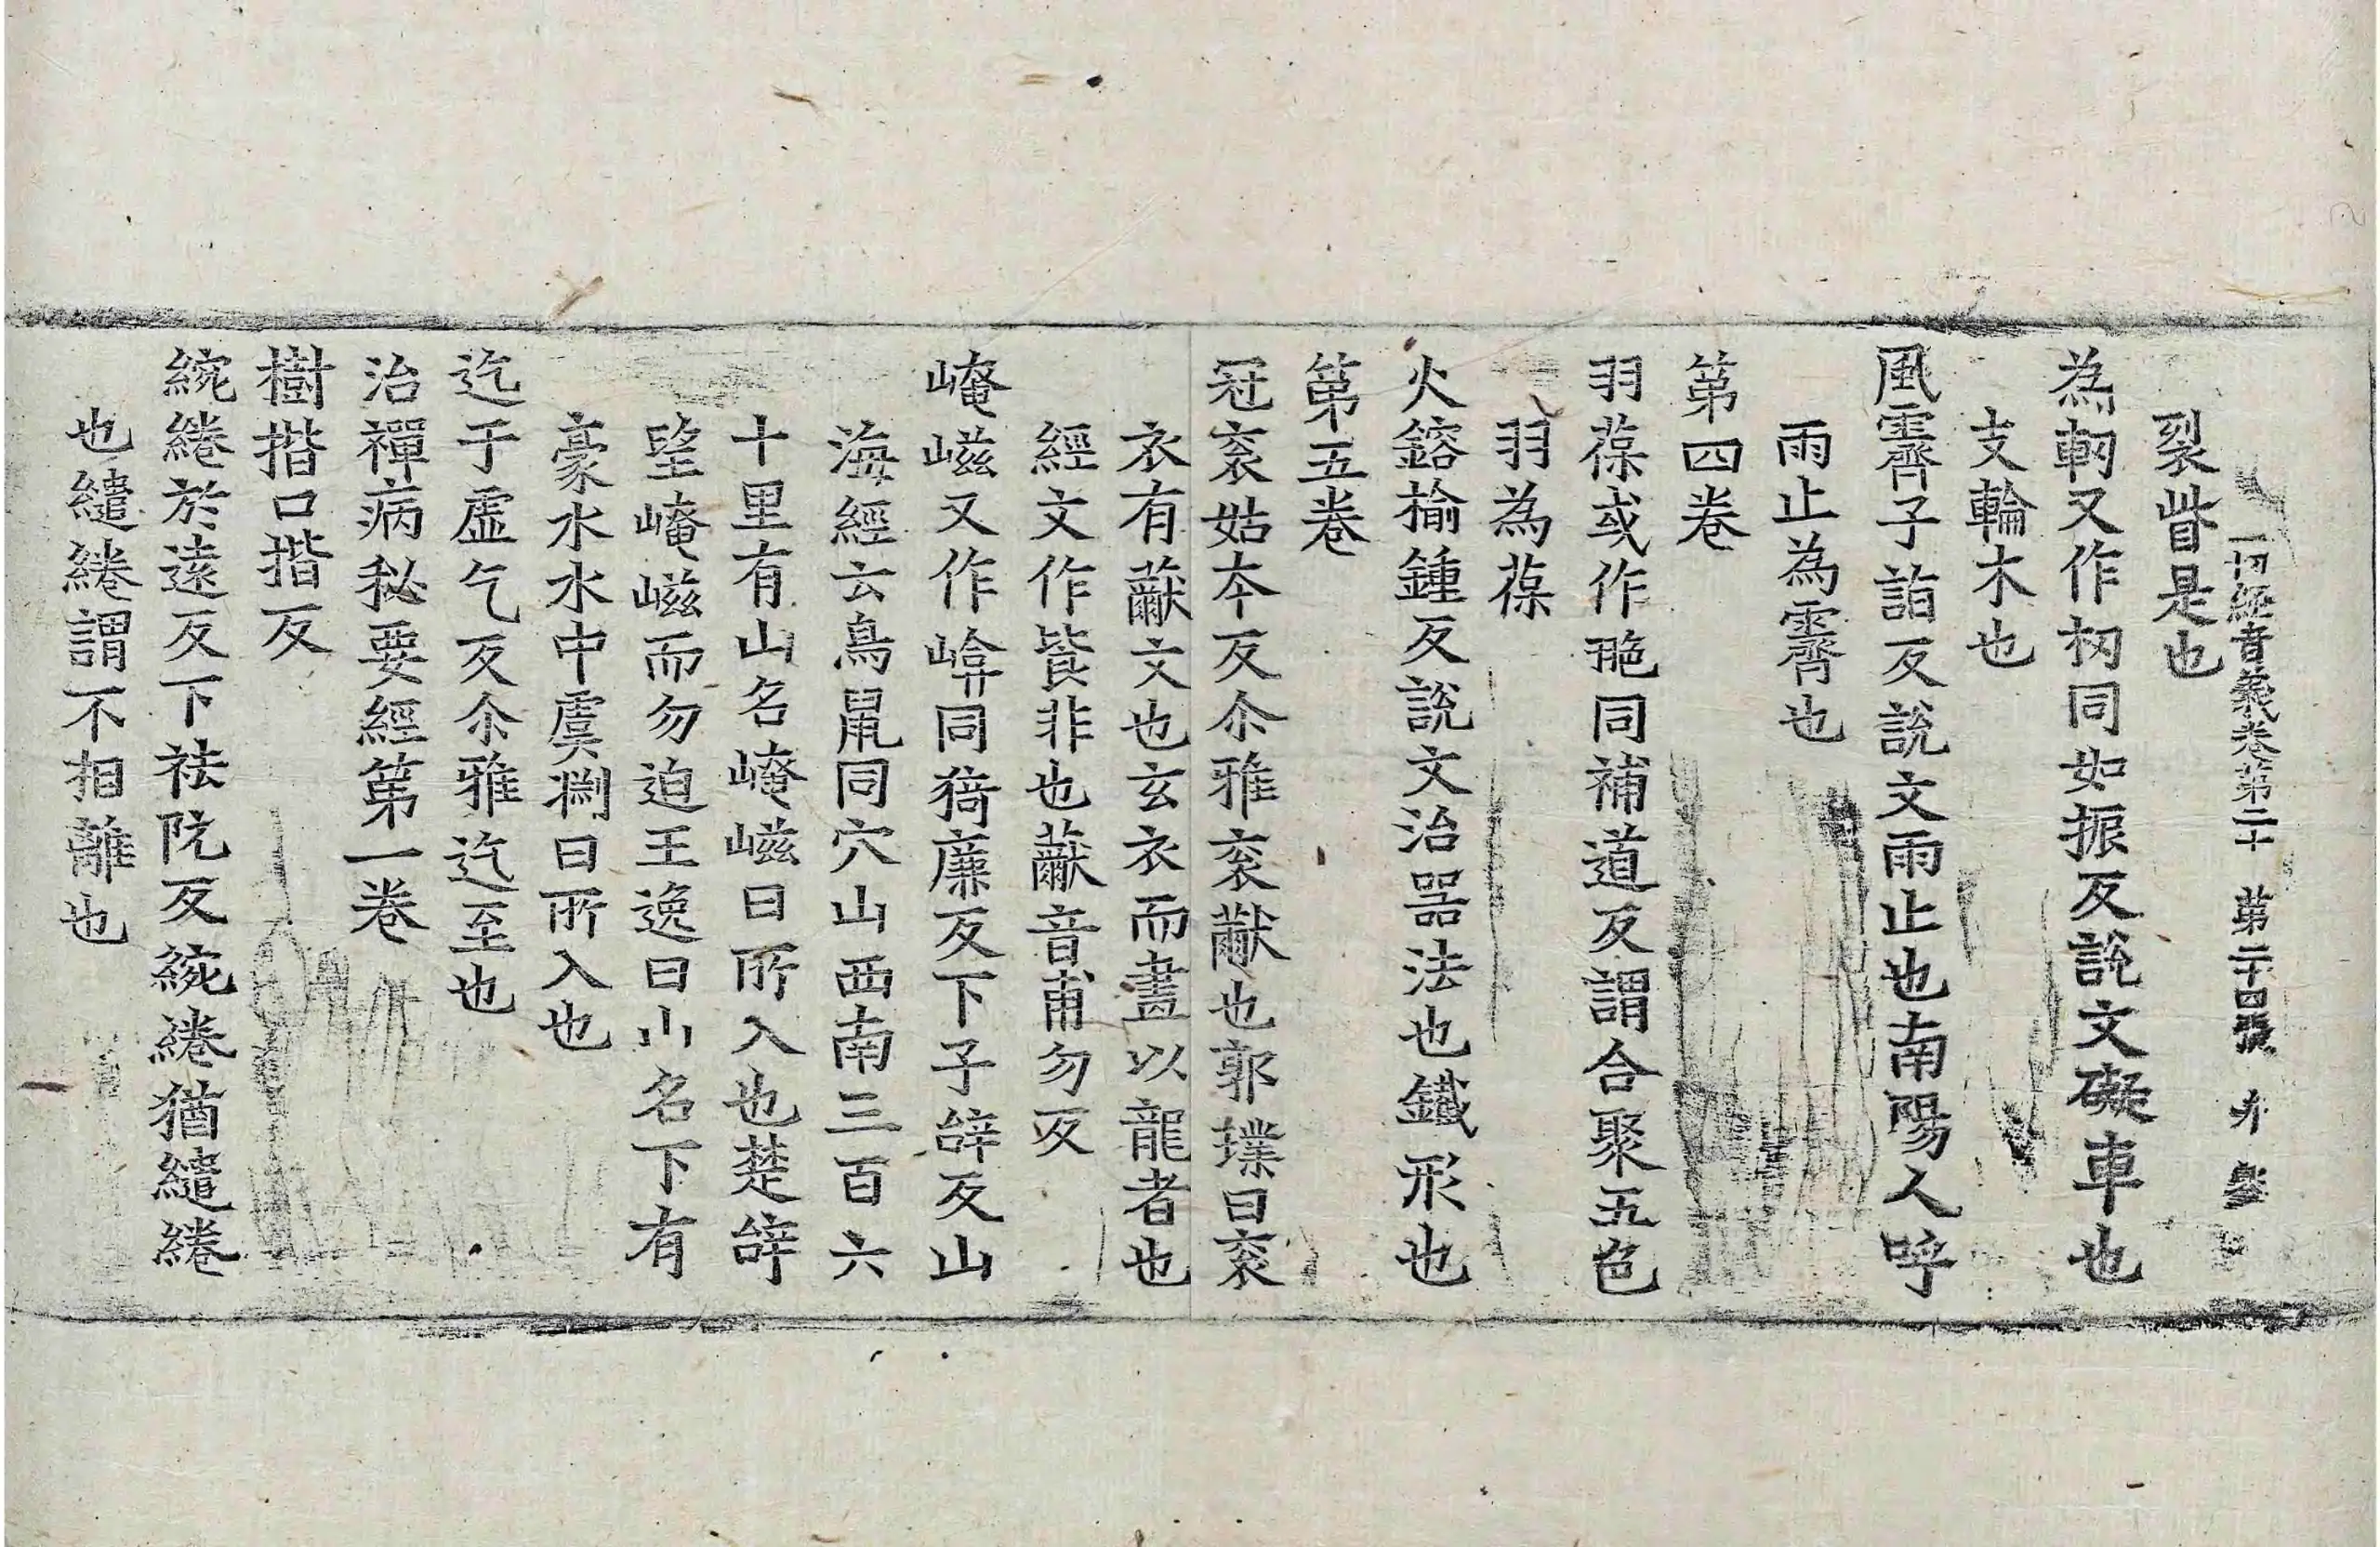 一切經音義卷第二十 第二十四張
裂眥是也
為軔又作杒同如振反說文礙車也
支輪木也
風霽子詣反說文雨止也南陽人呼
雨止為霽也
第四卷
羽葆或作䎂同補道反謂合聚五色
羽為葆
火鎔揄鍾反說文治器法也鐵形也
第五卷
冠衮姑本反尒雅衮黻也郭璞曰衮
衣有黻文也玄衣而畫以龍者也
經文作㡜非也黻音甫勿反
崦嵫又作㟏同猗廉反下子辝反山
海經云鳥鼠同穴山西南三百六
十里有山名崦嵫日所入也楚辝
望崦嵫而勿迫王逸曰山名下有
豪水水中虞渊日所入也
迄于虛乞反尒雅迄至也
治禪病秘要經第一卷
樹揩口揩反
綩綣於遠反下祛阮反綩綣猶繾綣
也繾綣謂不相離也